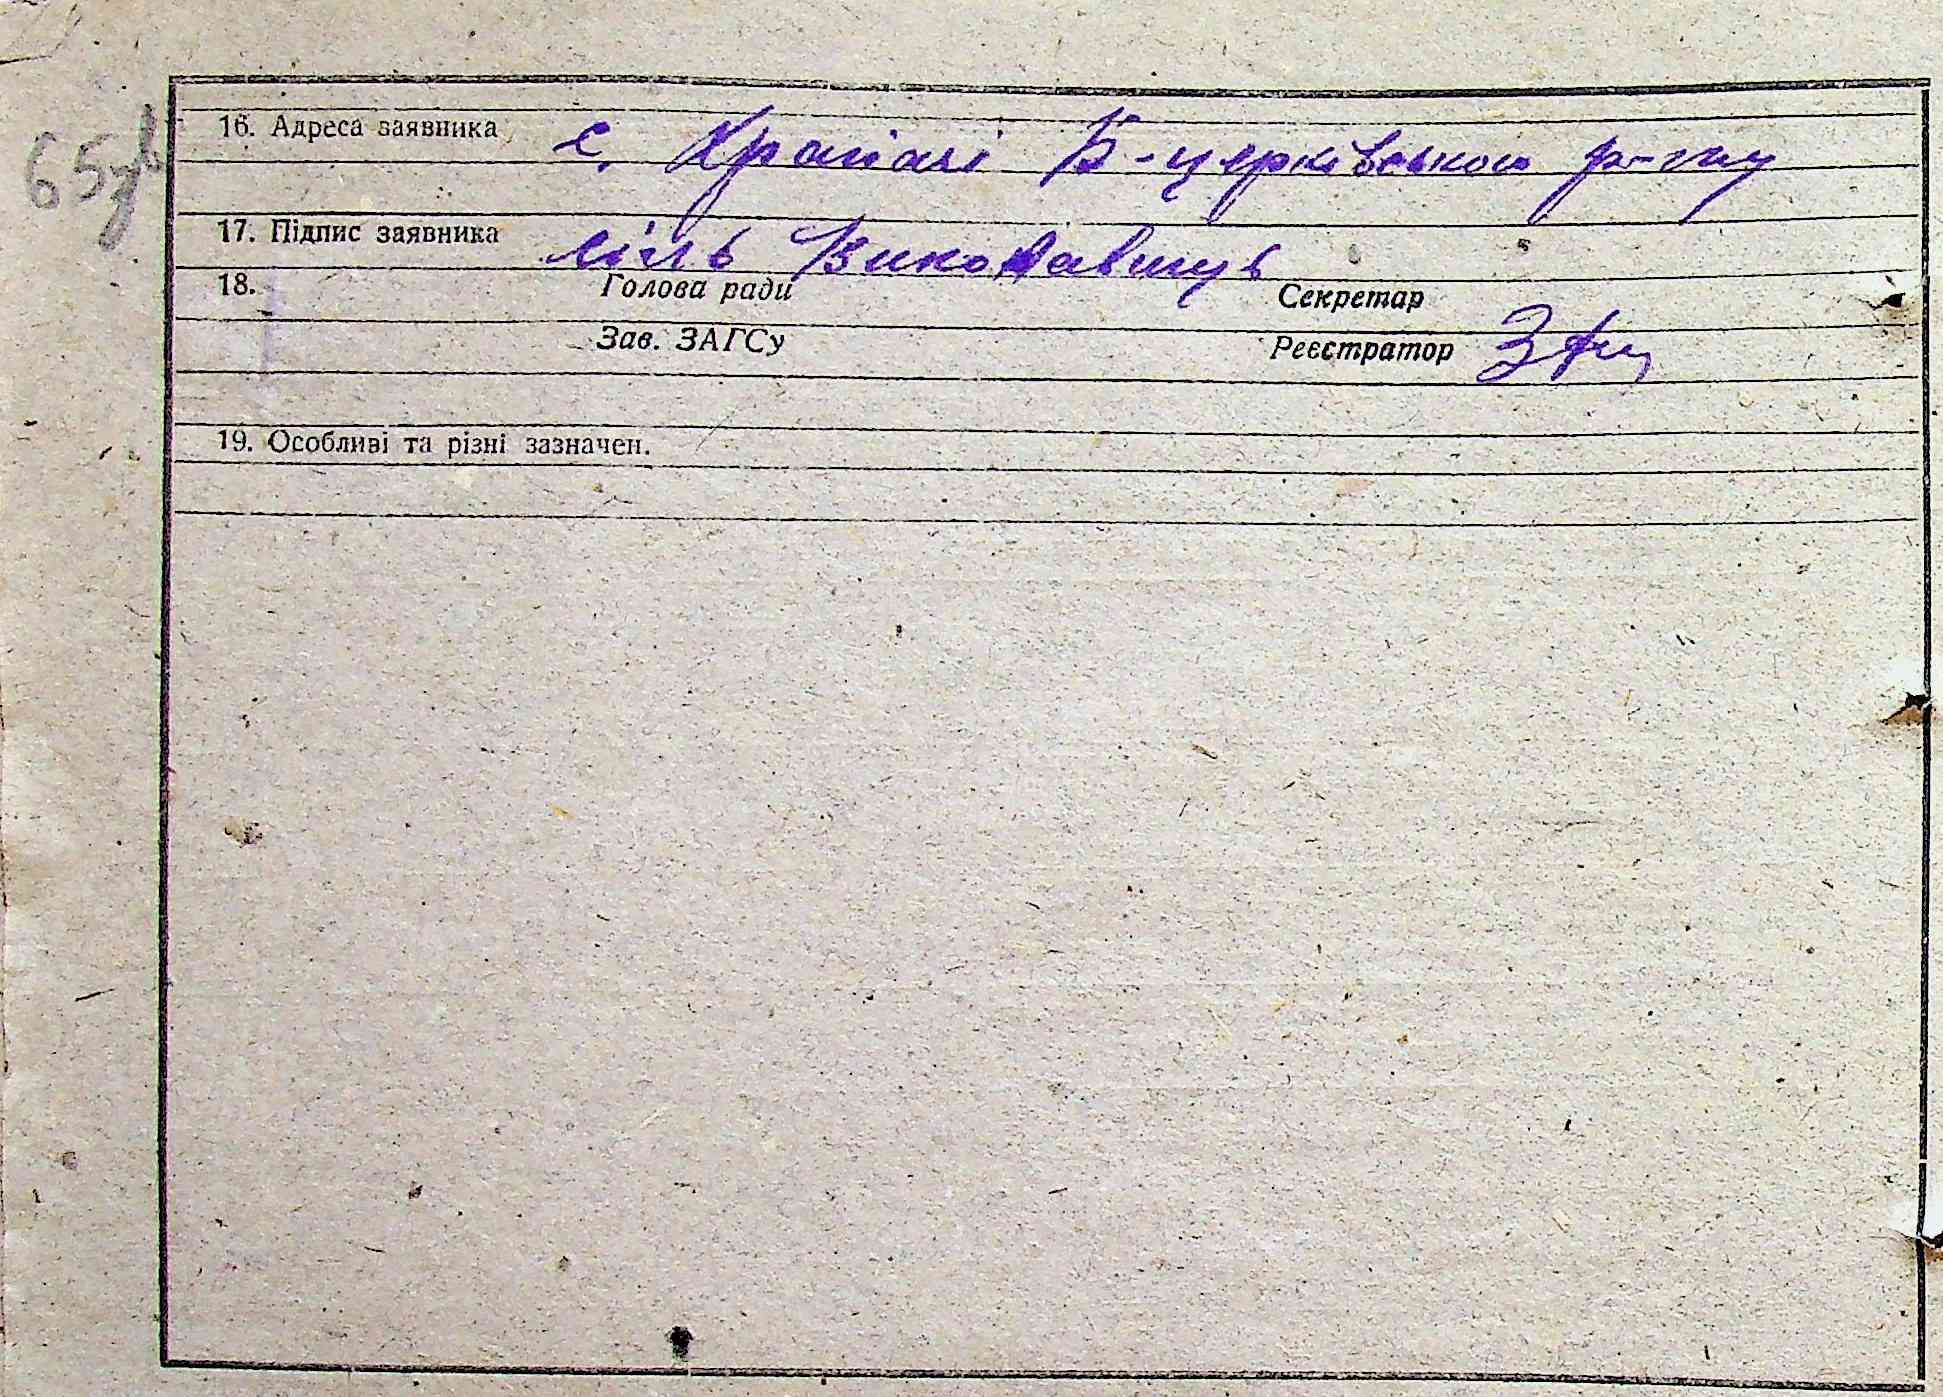 65зв
16. Адреса заявника с. Храпачі Б-церківського р-ну
17. Підпис заявника сіль Виковавець
18. Голова ради Секретар
Зав. ЗАГСу Реєстратор
19. Особливі та різні зазначен.